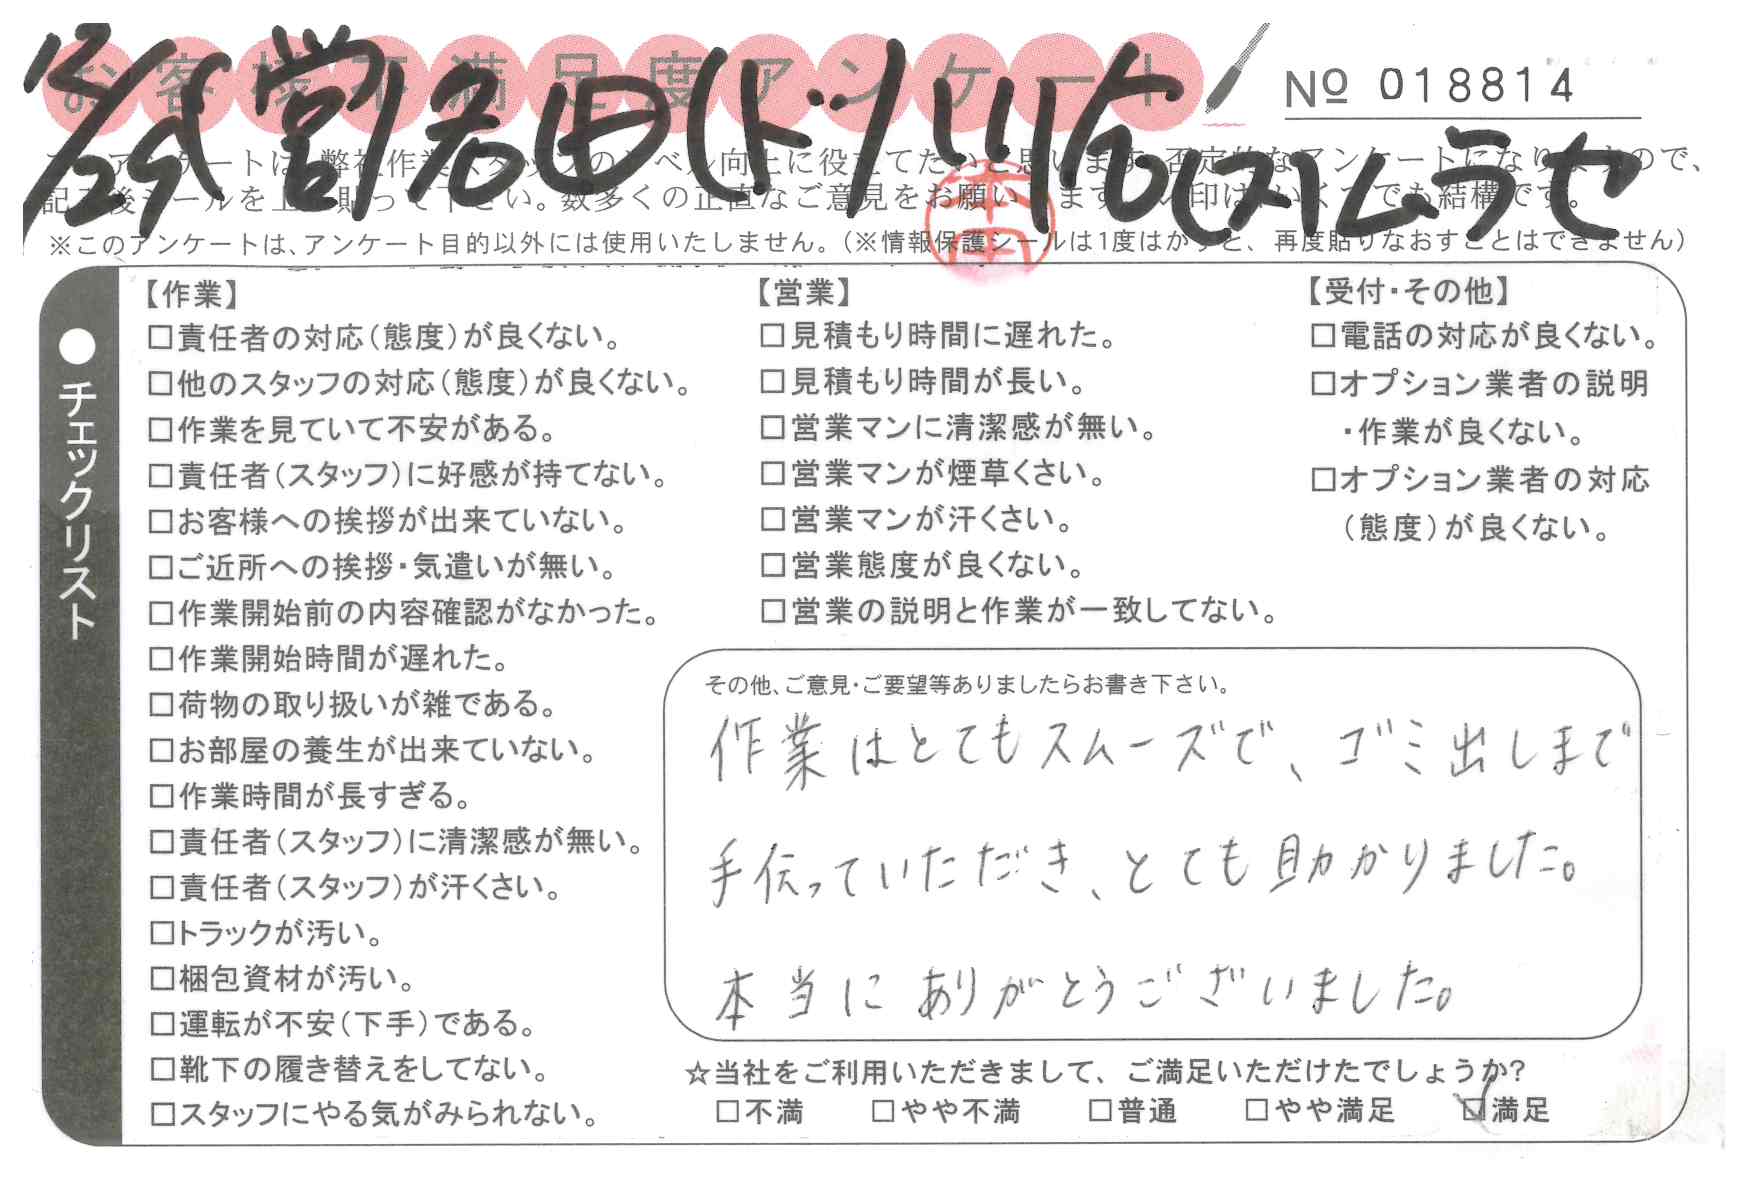 お客様不満足度アンケート
12/29 営)名田(ド)川
№ 018814
※このアンケートは、アンケート目的以外には使用いたしません。(※情報保護シールは1度はがすと、再度貼りなおすことはできません)
●チェックリスト
【作業】
□責任者の対応(態度)が良くない。
□他のスタッフの対応(態度)が良くない。
□作業を見ていて不安がある。
□責任者(スタッフ)に好感が持てない。
□お客様への挨拶が出来ていない。
□ご近所への挨拶・気遣いが無い。
□作業開始前の内容確認がなかった。
□作業開始時間が遅れた。
□荷物の取り扱いが雑である。
□お部屋の養生が出来ていない。
□作業時間が長すぎる。
□責任者(スタッフ)に清潔感が無い。
□責任者(スタッフ)が汗くさい。
□トラックが汚い。
□梱包資材が汚い。
□運転が不安(下手)である。
□靴下の履き替えをしてない。
□スタッフにやる気がみられない。
【営業】
□見積もり時間に遅れた。
□見積もり時間が長い。
□営業マンに清潔感が無い。
□営業マンが煙草くさい。
□営業マンが汗くさい。
□営業態度が良くない。
□営業の説明と作業が一致してない。
【受付・その他】
□電話の対応が良くない。
□オプション業者の説明
・作業が良くない。
□オプション業者の対応
(態度)が良くない。
その他、ご意見・ご要望等ありましたらお書き下さい。
作業はとてもスムーズで、ゴミ出しまで
手伝っていただき、とても助かりました。
本当にありがとうございました。
☆当社をご利用いただきまして、ご満足いただけたでしょうか?
□不満 □やや不満 □普通 □やや満足 ☑満足